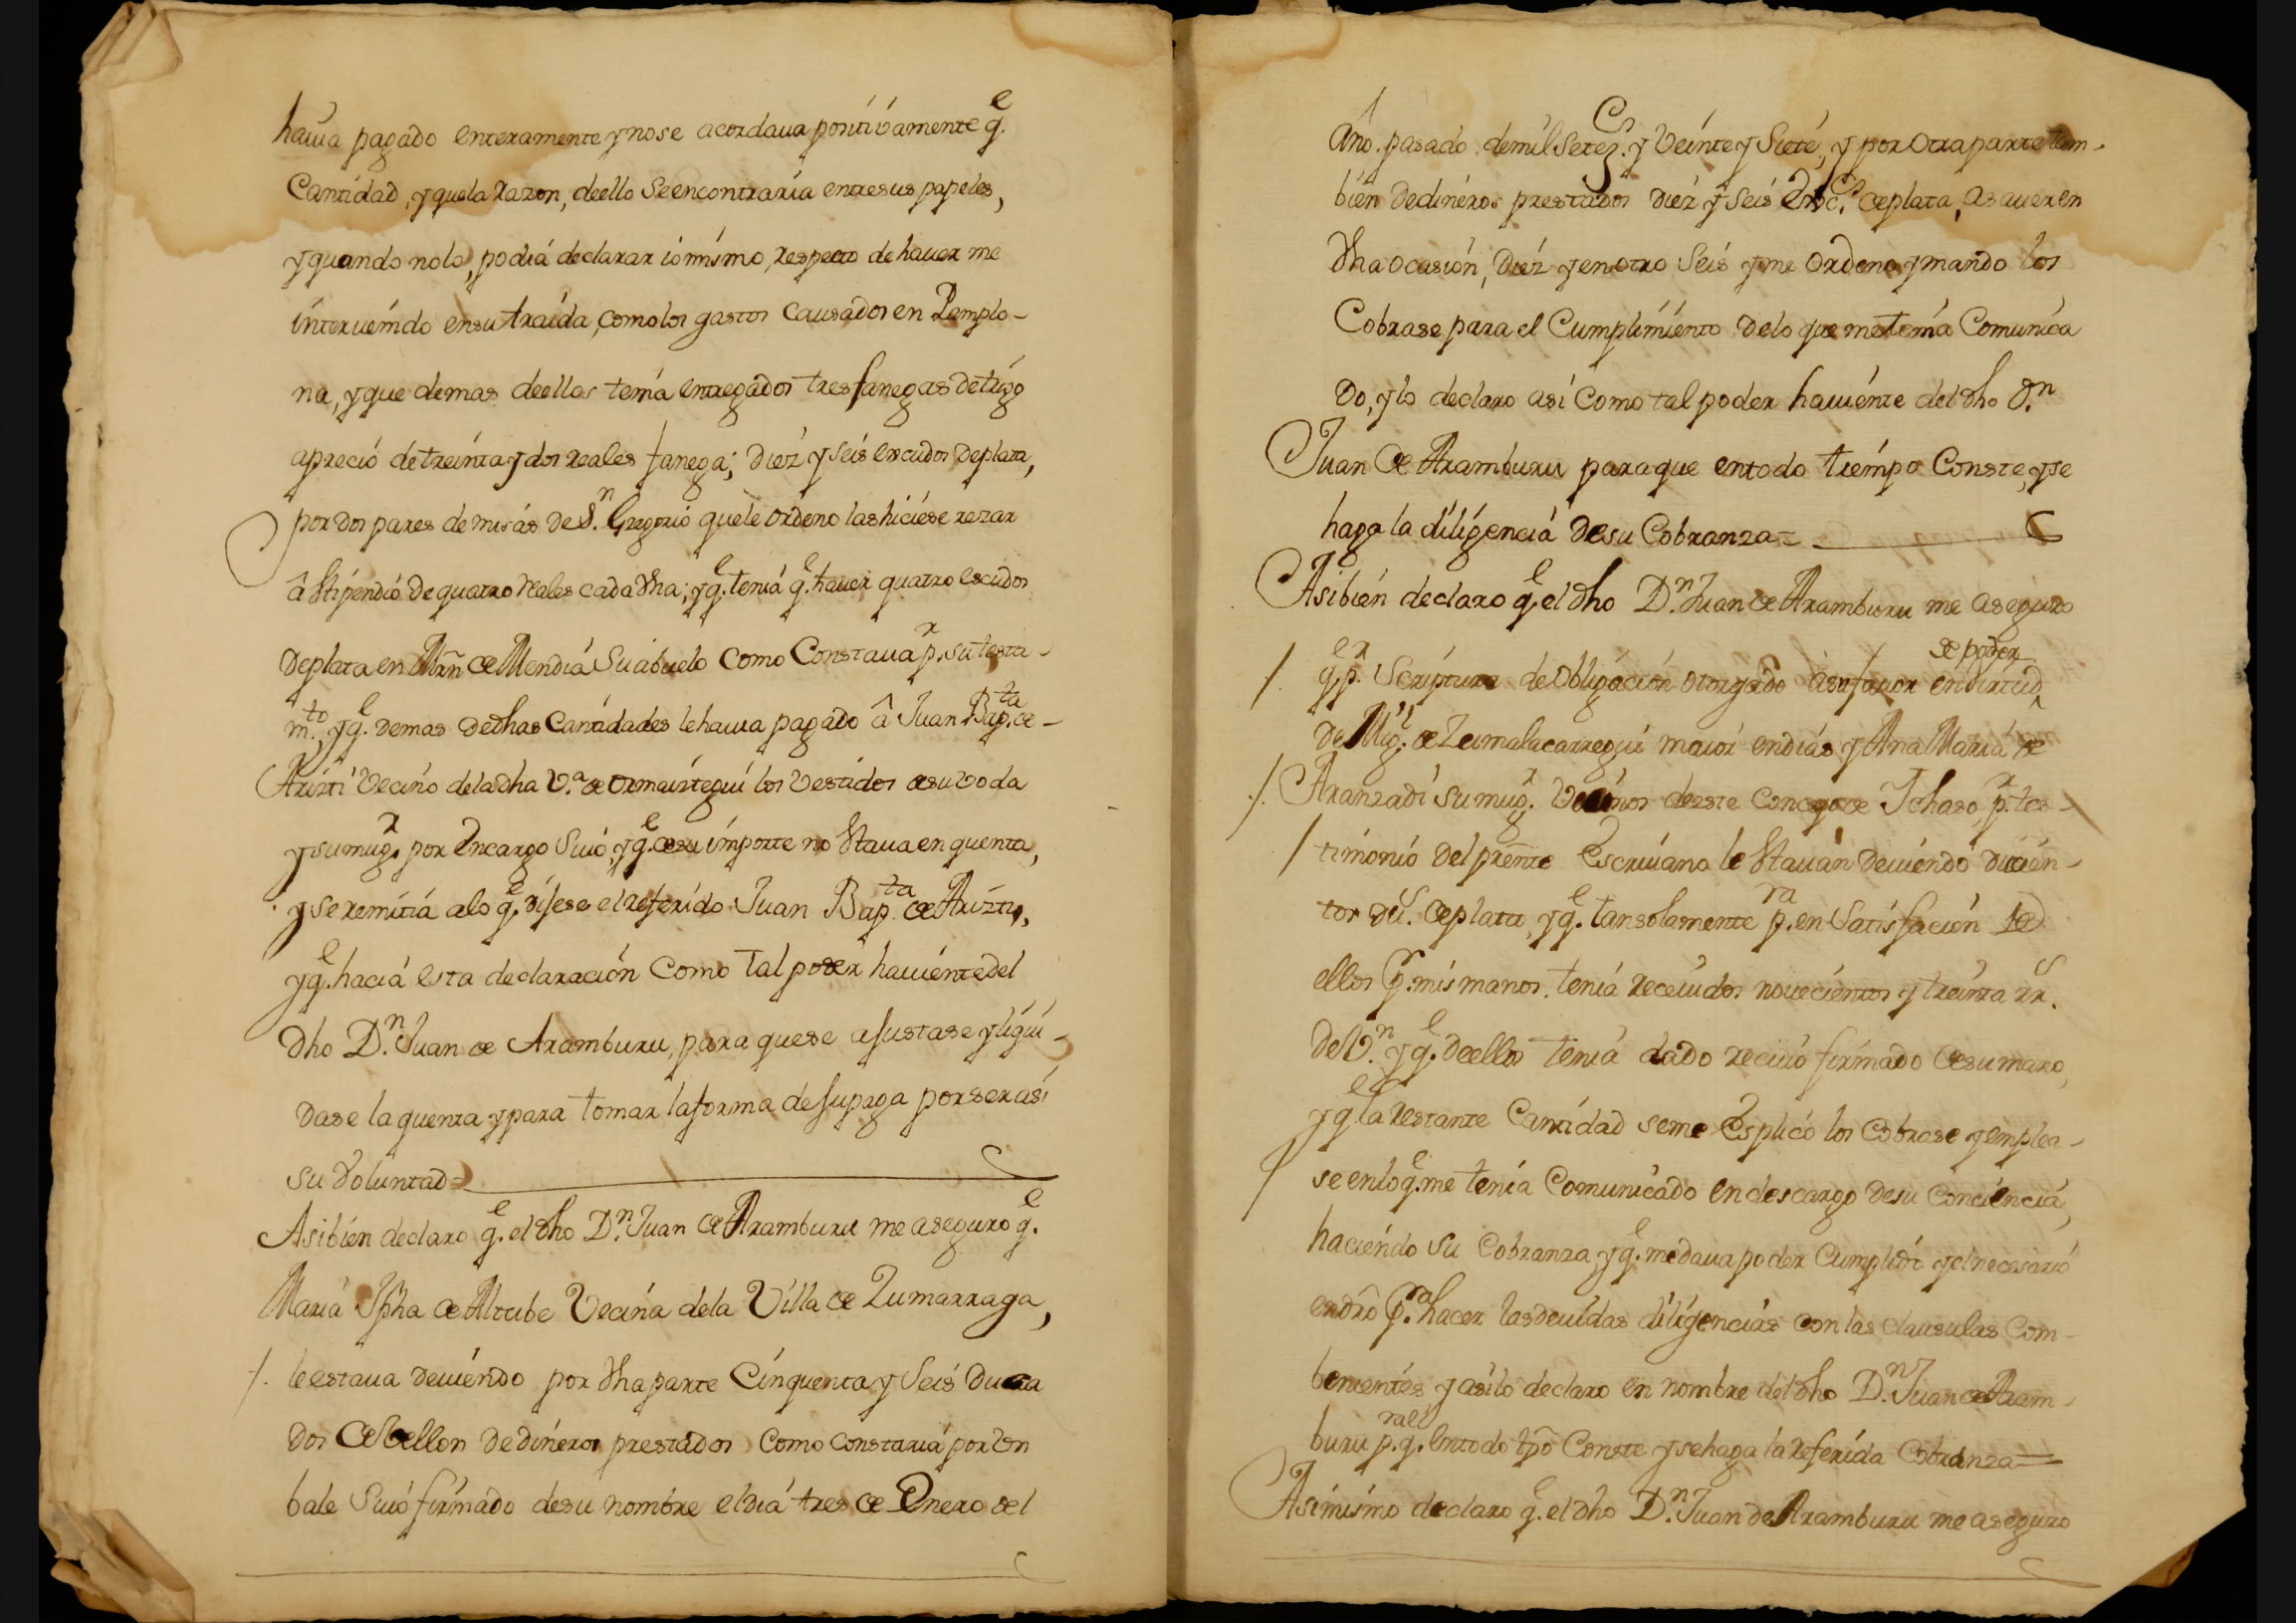 hauia pagado enteramente y no se acordaua posituamente q.e
Cantidad, y que la razon, de ello se encontraria entre sus papeles,
y quando no lo, podia declarar io mismo, respecto de hauer me
interuenido en su traida, como los gastos causados en Pamplo-
na, y que demas de ellos tenia entregados tres fanegas de trigo
a precio de treinta y dos reales fanega; diez y seis escudos de plata,
por dos pares de misas de S.n Gregorio que le ordeno las hiciese rezar
â stipendio de quatro reales cada dha; y q.e tenia q.e hauer quatro escudos
de plata en Mrñ de Mendia su abuelo como Constaua p.r su testa-
m.to, y q.e demas de dhas Cantidades le hauia pagado â Juan Bap.ta de-
Aristi Vecino de la dha V.a de Ormaiztegui los Vestidos de su boda
y su mug.r por encargo suio, y q.e de su importe no staua en quenta,
y se remitia a lo q.e dijese el referido Juan Bap.ta de Arizti,
y q.e hacia esta declaracion Como tal poder hauiente del
dho D.n Juan de Aramburu, para que se ajustase y liqui-
dase la quenta y para tomar la forma de su paga por ser asi
su Voluntad=
Asi bien declaro q.e el dho D.n Juan de Aramburu me aseguro q.e
Maria Jpha de Altube Vecina de la Villa de Zumarraga,
/. le estaua deuiendo por dha parte Cinquenta y Seis Duca
dos de bellon de dineros prestados Como constaria por Vn
bale Suio firmado de su nombre el dia tres de Enero del
Año. pasado de mil Setez.s y Veinte y Siete, y por otra parte tam-
bien de dineros prestados diez y seis Esc.s de plata, a sauer en
dha ocasion, diez y en otro Seis y me ordeno y mando los
Cobrase para el Cumplimiento de lo que me tenia Comunica
do, y lo declaro asi Como tal poder hauiente del dho D.n
Juan de Aramburu para que en todo tiempo Conste, y se
haga la diligencia de su Cobranza=
Asi bien declaro q.e el dho D.n Juan de Aramburu me aseguro
/. q.e p.r Scriptura de obligacion otorgado a su fauor en virtud
de poder
de Mig.l de Zumalacarregui maior en dias y Ana Maria de
/. Aranzadi su mug.r Vecinos de este Concejo de Ichaso, p.r tes-
/ timonio del preñte Escriuano le stauan deuiendo ducien-
tos du.s de plata, y q.e tan solamente p.ra en Satisfacion de
ellos p.r mis manos. tenia receuidos nouecientos y treinta rr.s
de V.n y q.e de ellos tenia dado reciuo firmado de su mano,
y q.e la restante Cantidad se me Esplicó los Cobrase y emplea-
/ se en lo q.e me tenia Comunicado en descargo de su conciencia,
haciendo su Cobranza, y q.e me daua poder Cumplido y el necesario
en dro p.ra hacer las deuidas diligencias con las clausulas Com-
benientes, y asi lo declaro en nombre del dho D.n Juan de Aram-
buru p.ra q.e en todo tpô Conste y se haga la referida Cobranza=
Asimismo declaro q.e el dho D.n Juan de Aramburu me aseguro